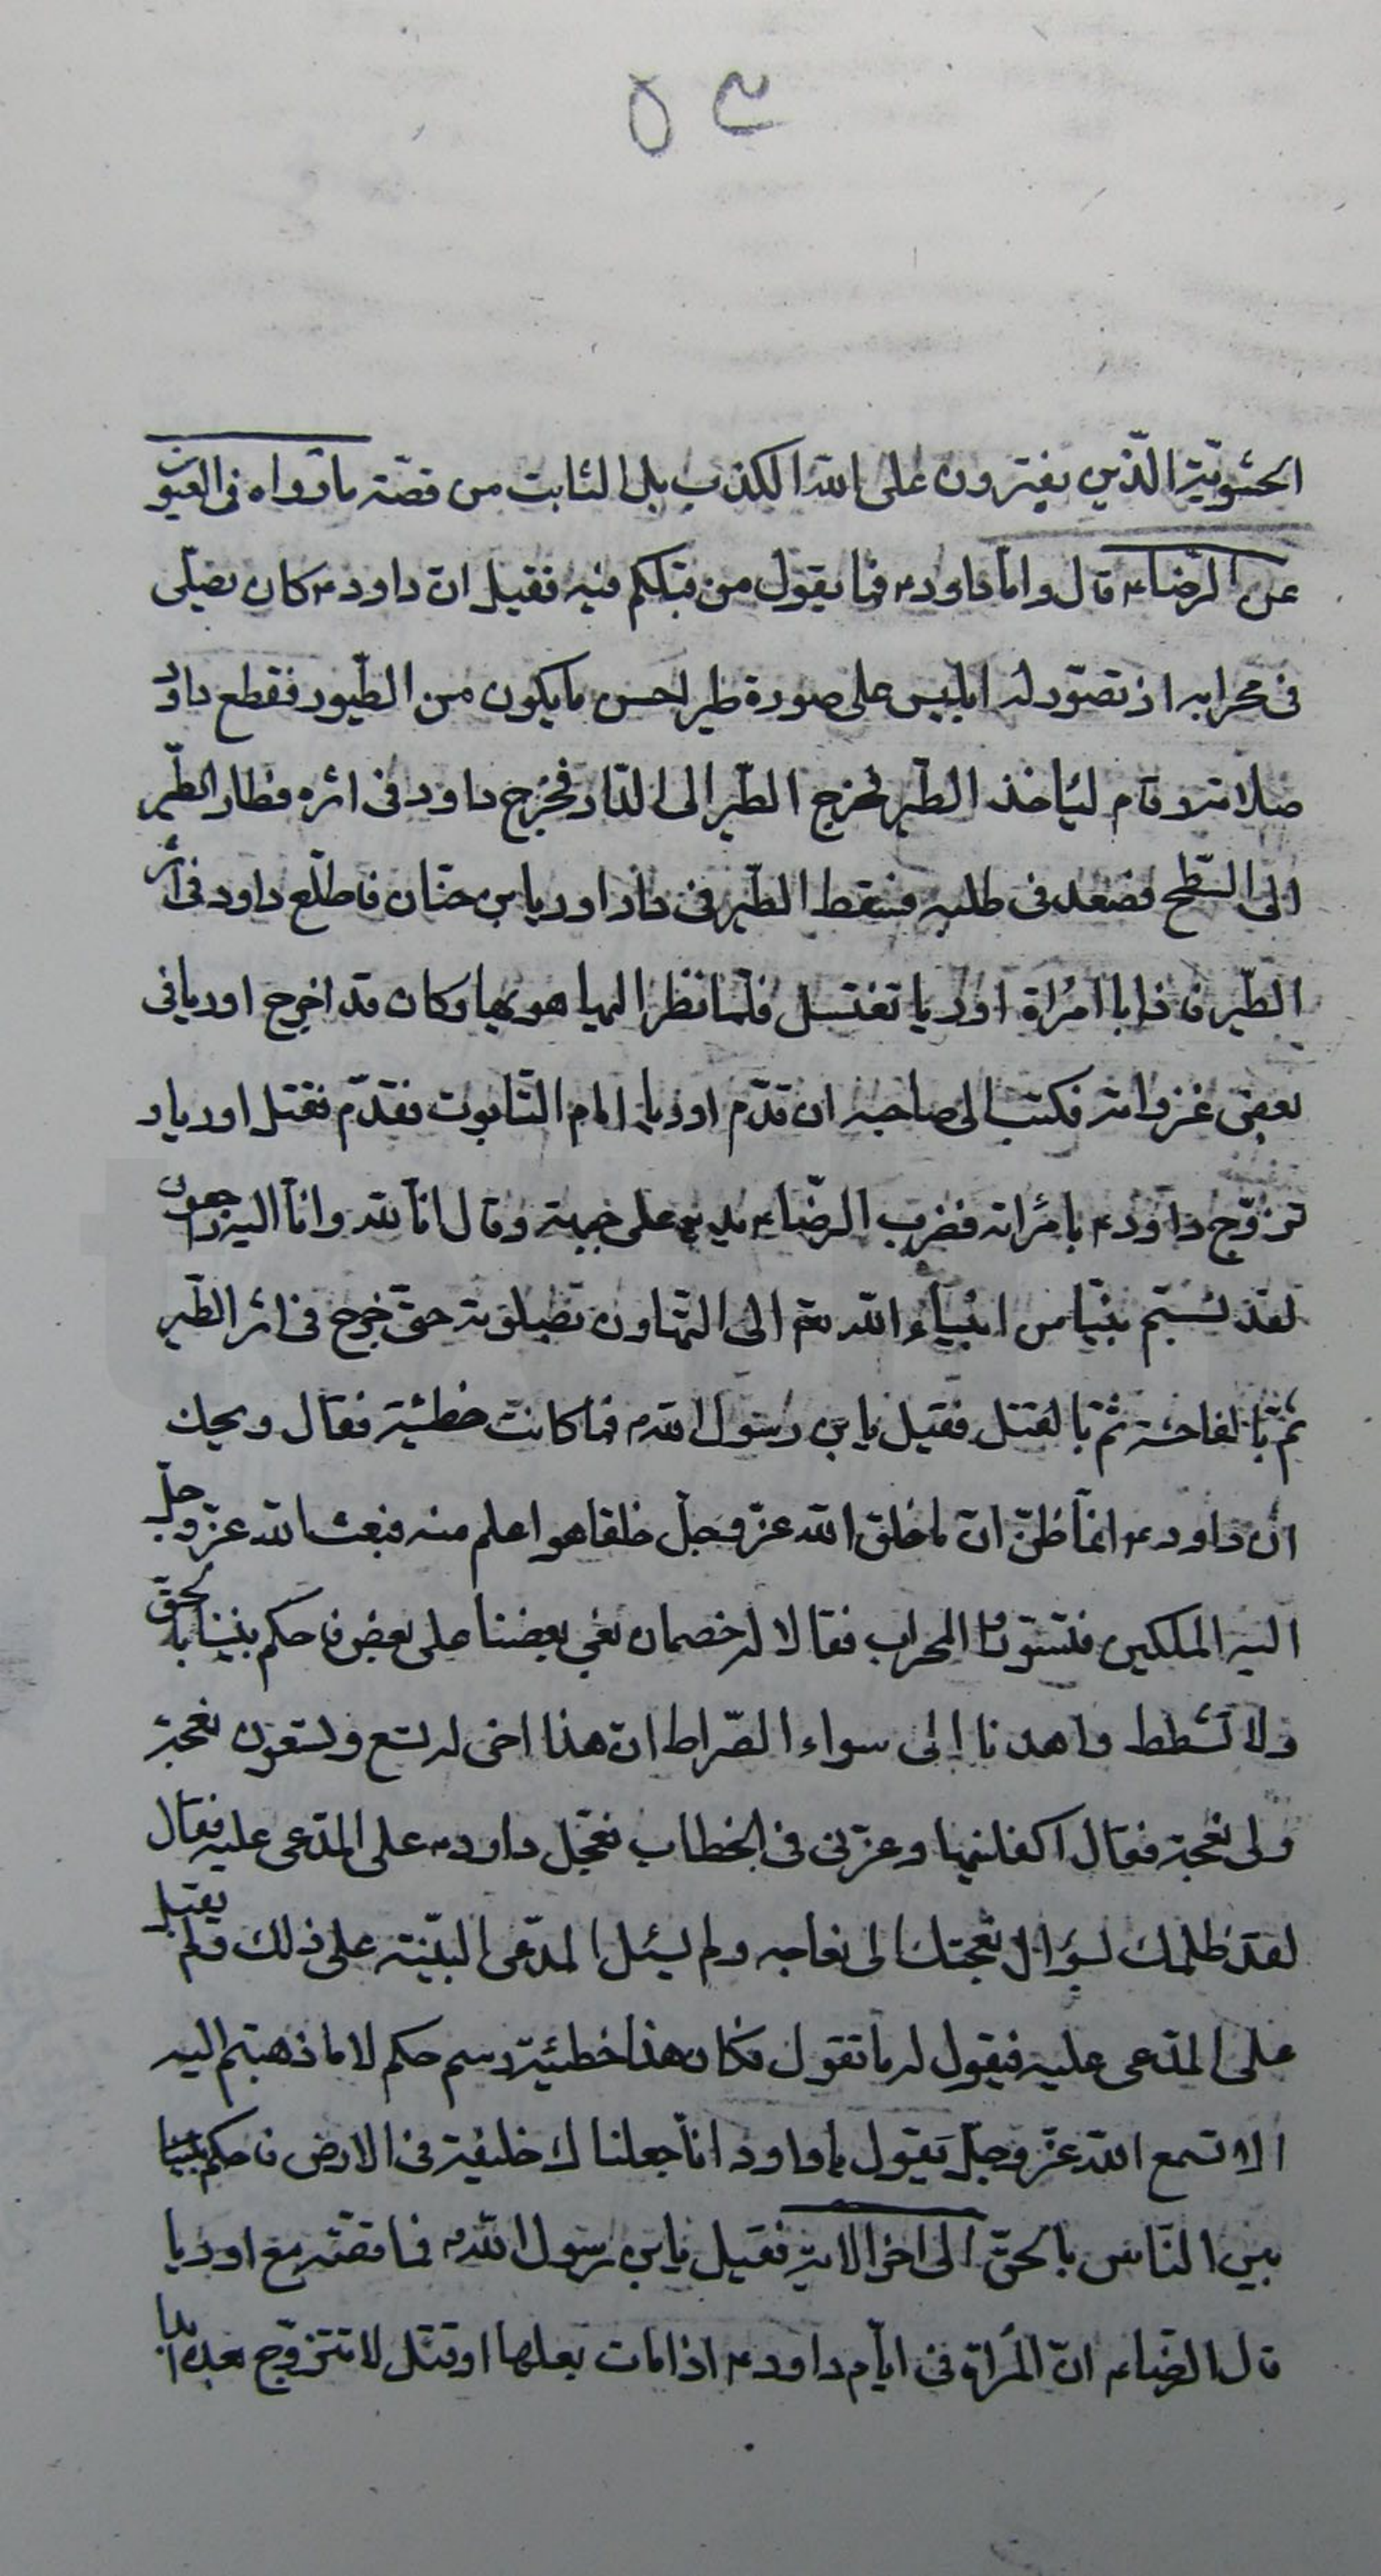 ٥٣
الحشويّة الّذين يفترون على الله الكذب بل الثابت من قصّته ما رواه فى العيون
عن الرّضاء قال وامّا داودء فما يقول من قبلكم فيه فقيل انّ داودء كان يصلّى
فى محرابه اذ تصوّر له ابليس على صورة طير احسن ما يكون من الطّيور فقطع داود
صلاته وقام ليأخذ الطّير فخرج الطّير الى الدّار فخرج داود فى اثره فطار الطّير
الى السّطح فصعد فى طلبه فسقط الطّير فى دار اوريا بن حنّان فاطّلع داود فى اثر
الطّير فاذا بامرأة اوريا تغتسل فلمّا نظر اليها هويها وكان قد اخرج اوريا فى
بعض غزواته فكتب الى صاحبه ان قدّم اوريا امام التّابوت فقدّم فقتل اوريا و
تزوّج داودء بامرأته فضرب الرّضاء يده على جبهته وقال انّا لله وانّا اليه راجعون
لقد نسبتم نبيّا من انبياء الله تعم الى التّهاون بصلوته حتّى خرج فى اثر الطّير
ثمّ بالفاحشة ثمّ بالقتل فقيل يابن رسول اللهء فما كانت خطيئته فقال ويحك
انّ داودء انّما ظنّ ان ما خلق الله عزّ وجلّ خلقا هو اعلم منه فبعث الله عزّ وجلّ
اليه الملكين فتسوّرا المحراب فقالا له خصمان بغى بعضنا على بعض فاحكم بيننا بالحقّ
ولا تشطط واهدنا إلى سواء الصّراط انّ هذا اخى له تسع وتسعون نعجة
ولى نعجة فقال اكفلنيها وعزّنى فى الخطاب فعجّل داودء على المدّعى عليه فقال
لقد ظلمك بسؤال نعجتك الى نعاجه ولم يسئل المدّعى البيّنة على ذلك ولم يقبل
على المدّعى عليه فيقول له ما تقول فكان هذا خطيئة رسم حكم لا ما ذهبتم اليه
الا تسمع الله عزّ وجلّ يقول يا داود انّا جعلناك خليفة فى الارض فاحكم
بين النّاس بالحقّ الى اخر الاية فقيل يابن رسول اللهء فما قصّته مع اوريا
قال الرضاء انّ المرأة فى ايّام داودء اذا مات بعلها او قتل لا تتزوّج بعده ابدا